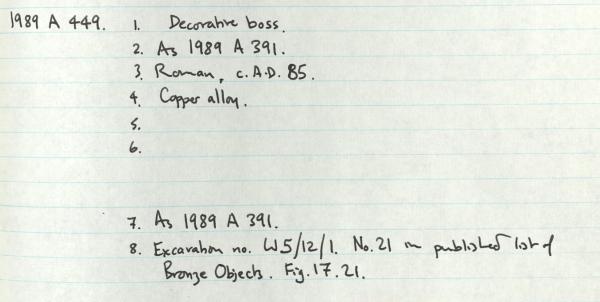 1989 A 449. 1. Decorative boss.
2. As 1989 A 391.
3. Roman, c. A.D. 85.
4. Copper alloy.
5.
6.
7. As 1989 A 391.
8. Excavation no. W5/12/1. No. 21 in published list of
Bronze Objects. Fig. 17.21.